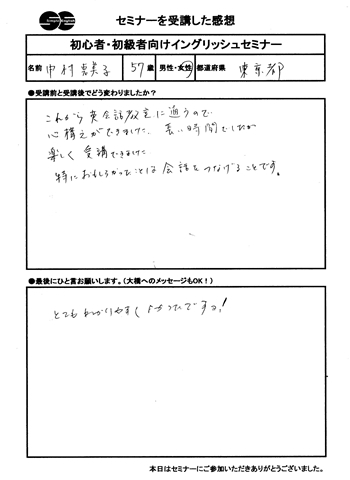 セミナーを受講した感想
初心者・初級者向けイングリッシュセミナー
名前 中村恵美子 57歳 男性・女性 都道府県 東京都
●受講前と受講後でどう変わりましたか？
これから英会話教室に通うので
心構えができました。長い時間でしたが
楽しく受講できました
特におもしろかったことは会話をつなげることです。
●最後にひと言お願いします。（大橋へのメッセージもOK！）
とてもわかりやすくよかったですよ！
本日はセミナーにご参加いただきありがとうございました。